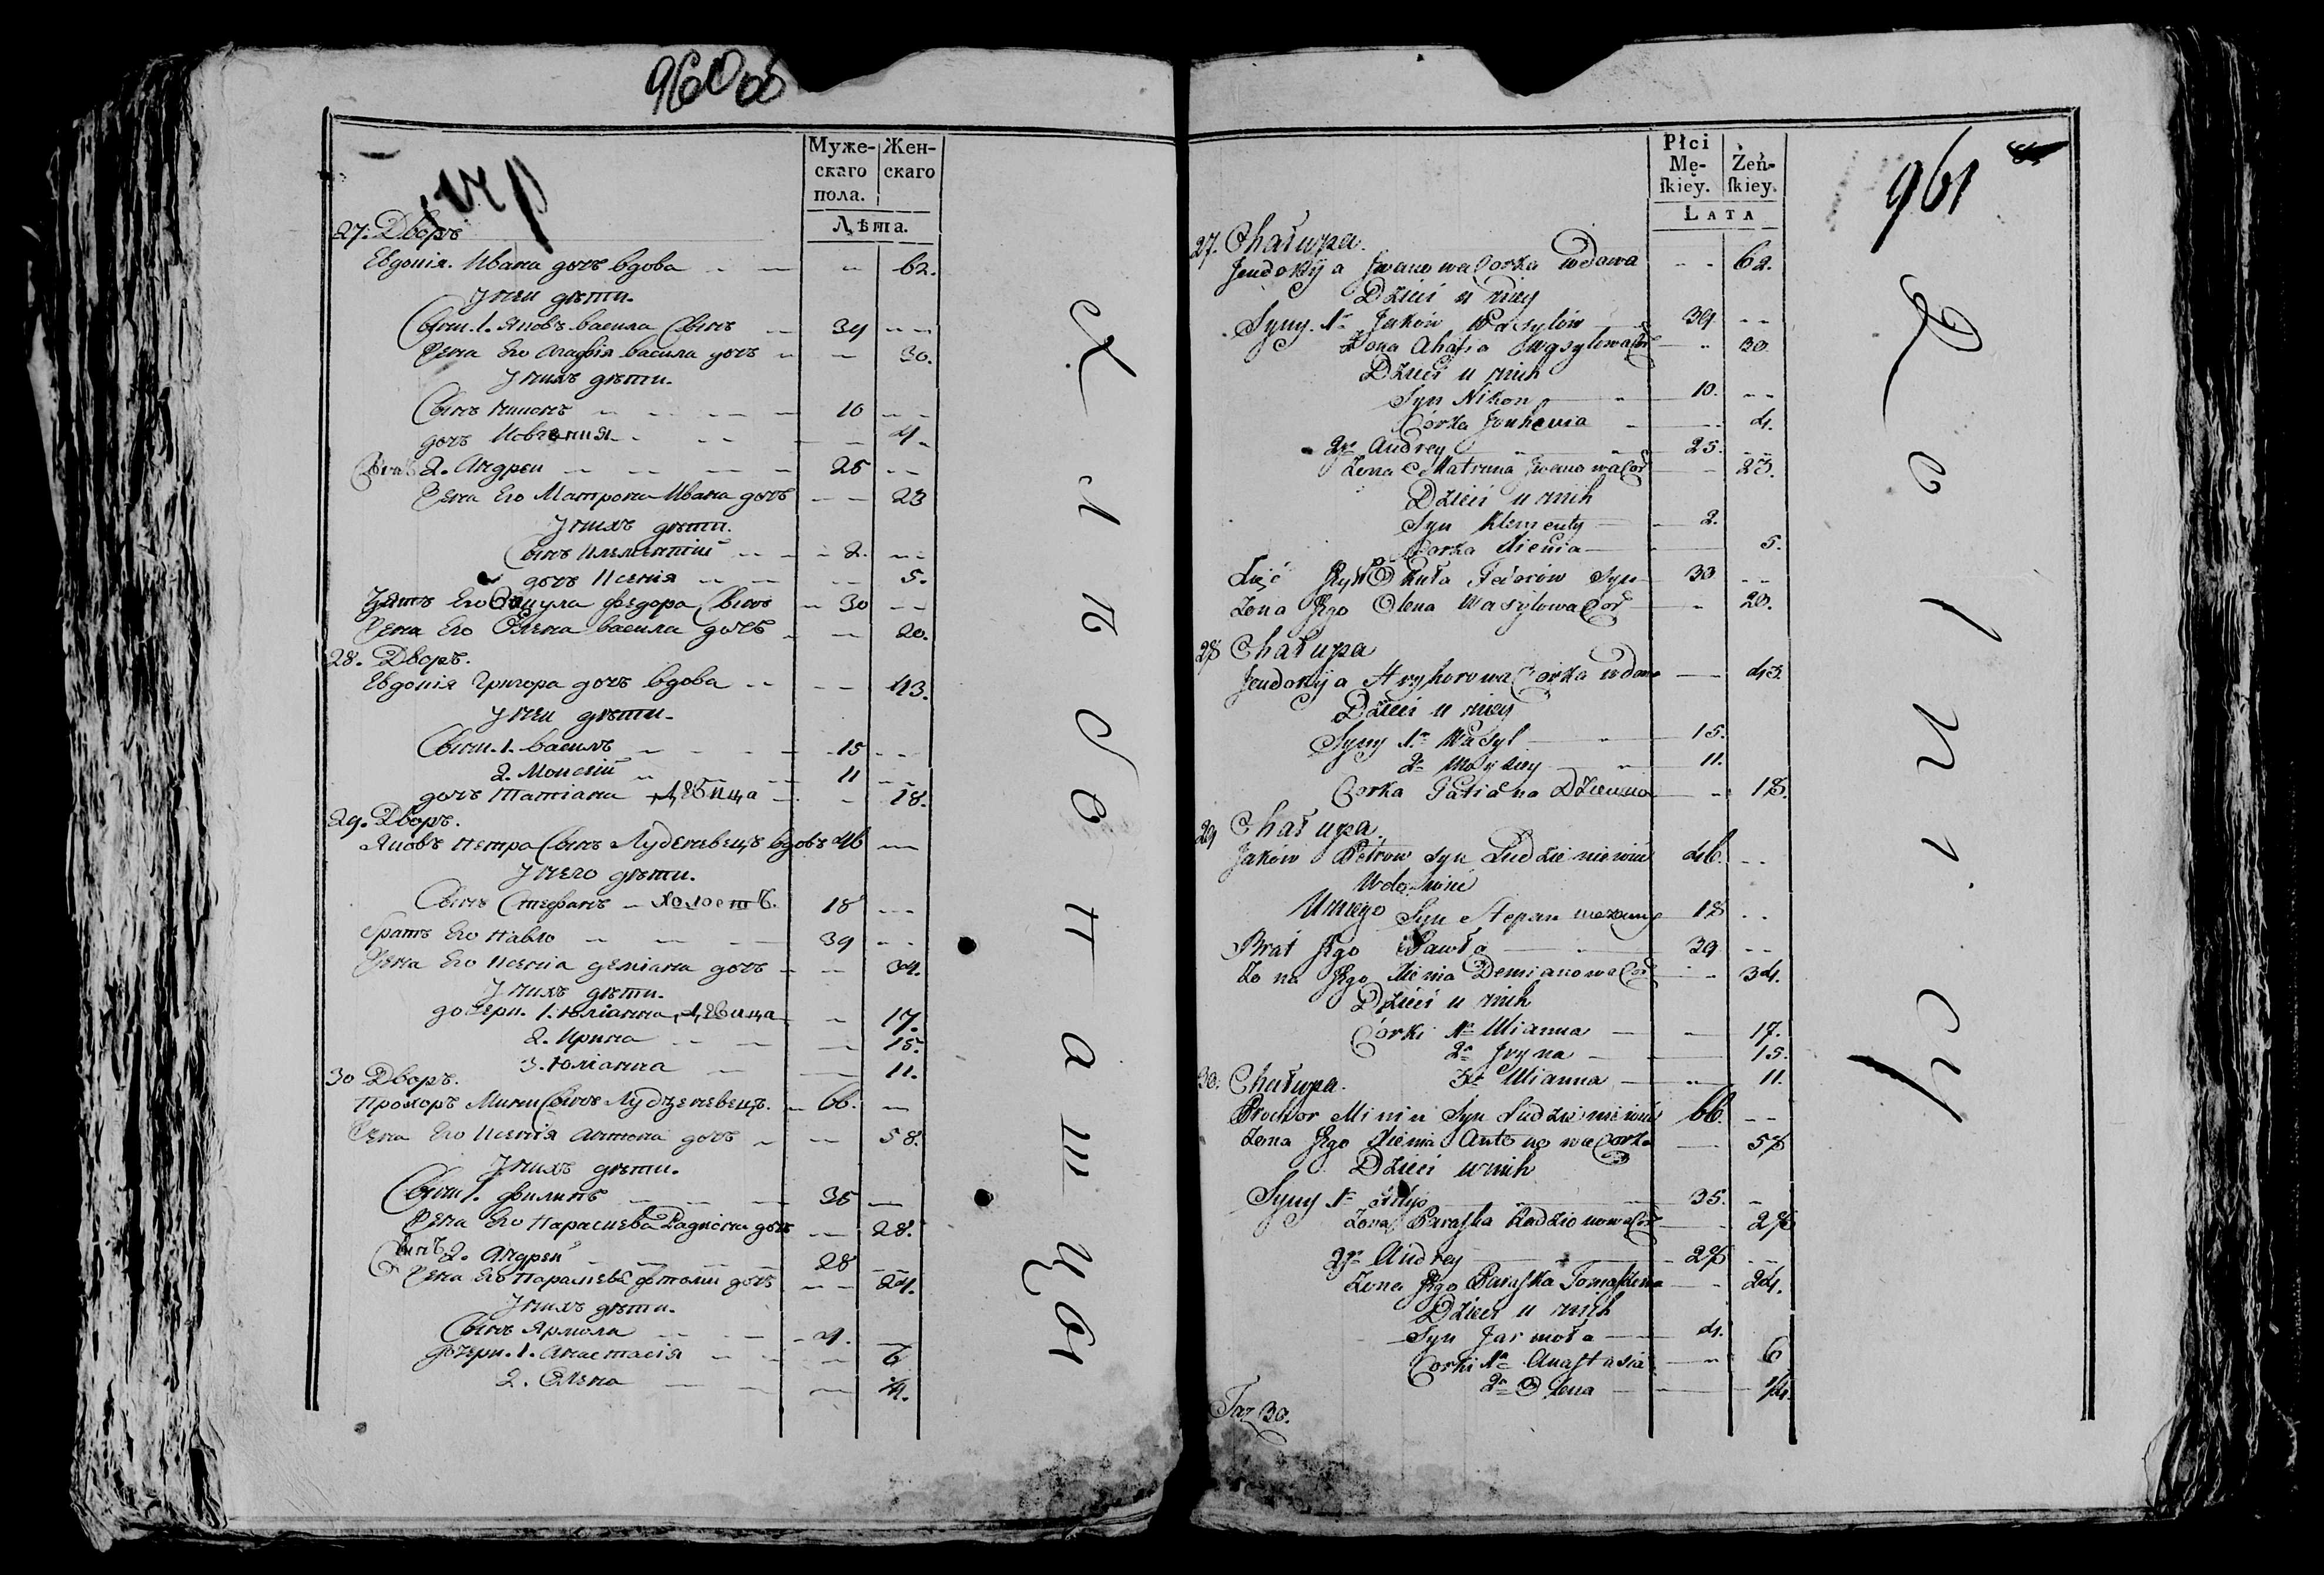 960 об
Муже-
скаго
пола.
Жен-
скаго
Лѣта.
27. Дворъ
Евдокія Ивана дочь вдова 62.
У неи дѣти.
Сыны. 1. Яковъ Васила сынъ 39
Жена Его Агафія Васила дочь 30.
У нихъ дѣти.
Сынъ Никонъ 10
дочь 4
Сынъ 2. Андреи 25
Жена Его Матрона Ивана дочь 23
У нихъ дѣти.
Сынъ Клементій 2.
дочь Ксенія 5.
Зять Его Федора сынъ 30
Жена Его Олена Васила дочь 20.
28. Дворъ.
Евдокія Григора дочь вдова 43.
У неи дѣти.
Сыны. 1. Василь 15
2. Моисей 11
дочь Татіана дѣвица 18.
29. Дворъ.
Яковъ Петра сынъ Лудзеневецъ вдовъ 46
У него дѣти.
Сынъ Стефанъ холостъ. 18
Братъ Его Павло 39
Жена Его Ксенія Деміана дочь 34.
У нихъ дѣти.
дочери. 1. Юліанна дѣвица 17.
2. Ирина 15.
3. Юліанна 11.
30 Дворъ.
Прохоръ Мини сынъ Лудзеневецъ. 66.
Жена Его Ксенія Антона дочь 58.
У нихъ дѣти.
Сыны 1. Филипъ 35
Жена Его Парасцева Радиона дочь 28.
Сынъ 2. Андрей 28
Жена Его Парасцева дочь 24.
У нихъ дѣти.
Сынъ Ярмола 4.
дочери. 1. Анастасія 6
2. Олена 1/4.
Хлѣбопашцы
Płci
Mę-
skiey.
Żeń-
skiey.
LATA
961
27. Chałupa.
Jeudokija Iwanowa Corka wdowa 62.
Dzieci u niey
Syny. 1° Jakow Wasylów 39
Zona Ahafia Wasylowa Cor 30.
Dzieci u nich
Syn Nikon 10.
Corka 4.
2° Andrey 25.
Zona Matruna Iwanowa Cor 23.
Dzieci u nich
Syn Klementy 2.
Corka Xienia 5.
Fedorów Syn 30
Zona Jego Olena Wasylowa Cor 20.
28 Chałupa
Jeudokija Hryhorowa Corka wdowa 43.
Dzieci u niey
Syny 1° Wasyl 15.
2° Moysey 11.
Corka Tatiana Dziewica 18.
29 Chałupa.
Jaków Petrow Syn Ludzieniewiec 46.
Wdowiec
U niego Syn Stepan 18
Brat Jego Pawła 39
Zona Jego Xienia Demianowa Cor 34.
Dzieci u nich
Corki 1° Ulianna 17.
2° Iryna 15.
3° Ulianna 11.
30. Chałupa.
Prochor Minin Syn Ludzieniewiec 66.
Zona Jego Xienia Antonowa Corka 58
Dzieci u nich
Syny 1° Filip 35.
Zona Paraska Radzionowa Cor 28
2° Andrey 28
Zona Jego Paraska 24.
Dzieci u nich
Syn Jarmoła 4.
Corki 1° Anastasia 6
2° Olena 1/4.
Faz 30.
Rolnicy